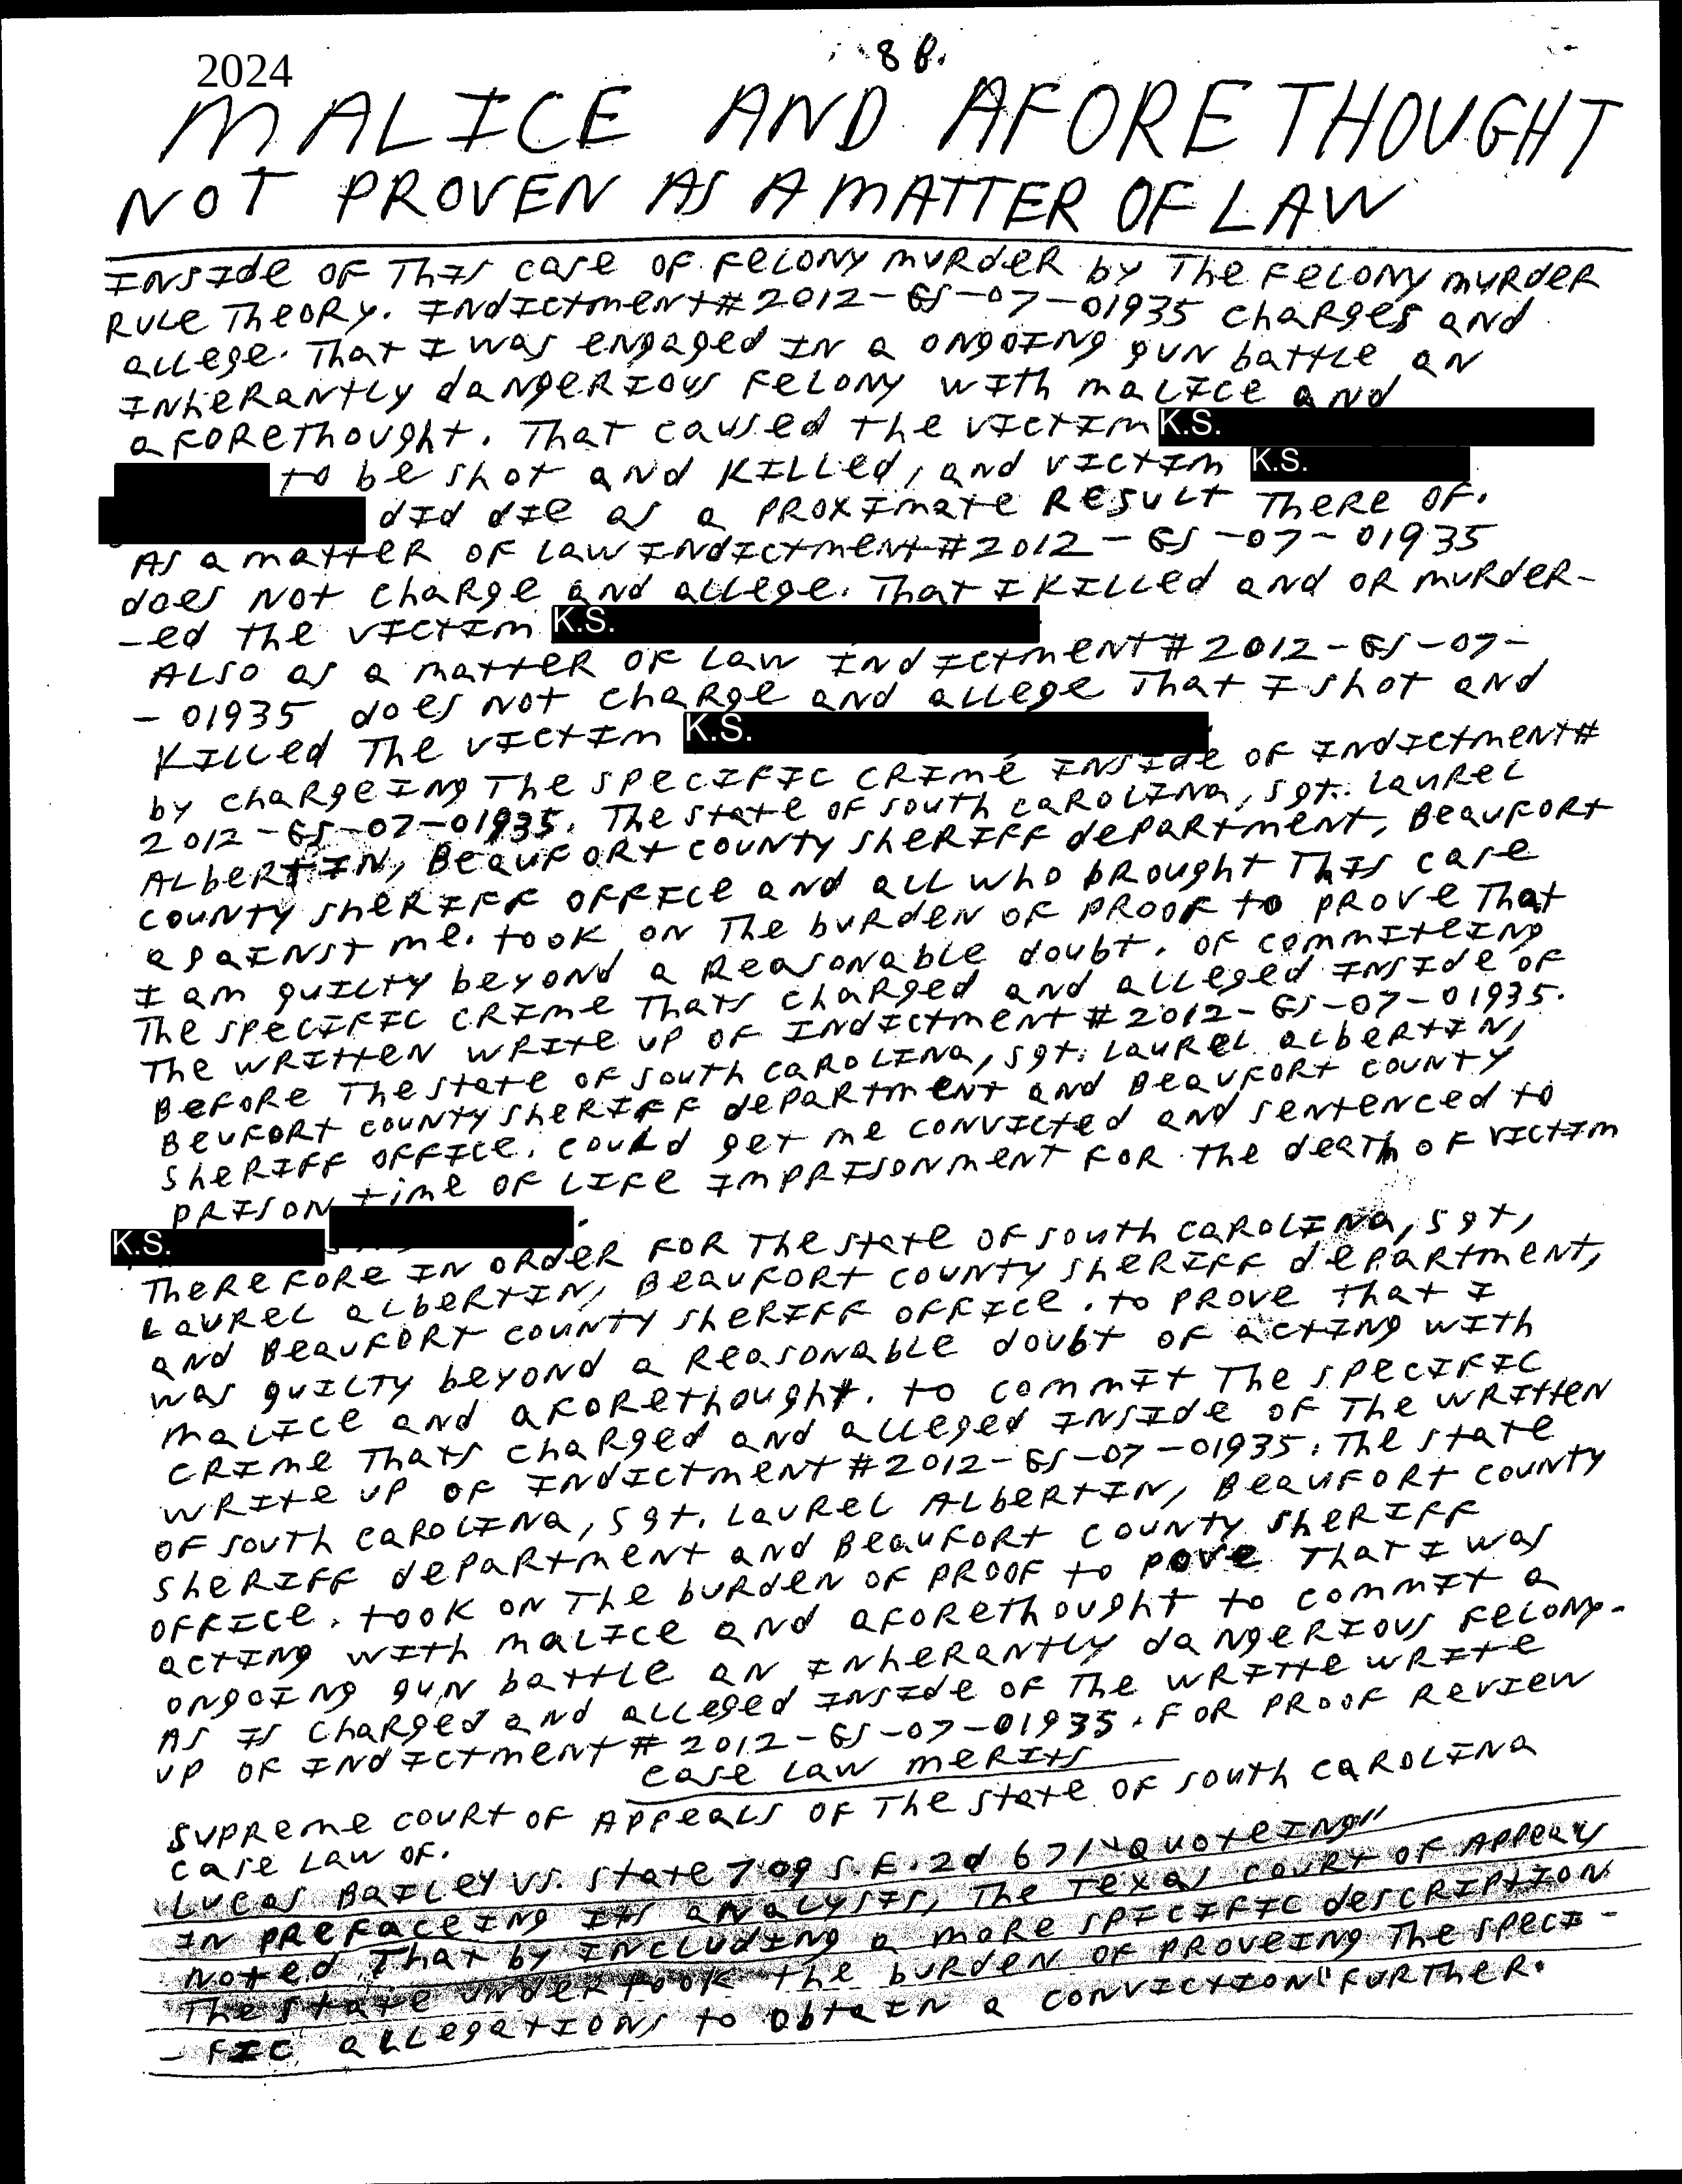 8 B.
2024
MALICE AND AFORETHOUGHT
NOT PROVEN AS A MATTER OF LAW
INSIDE OF THIS CASE OF FELONY MURDER by THE FELONY MURDER
RULE THEORY. INDICTMENT# 2012-GS-07-01935 CHARGES AND
ALLEGE. THAT I WAS ENGAGED IN A ONGOING GUN BATTLE AN
INHERANTLY DANGERIOUS FELONY WITH MALICE AND
AFORETHOUGHT. THAT CAUSED THE VICTIM K.S.
TO BE SHOT AND KILLED, AND VICTIM K.S.
DID DIE AS A PROXIMATE RESULT THERE OF.
AS A MATTER OF LAW INDICTMENT# 2012-GS-07-01935
DOES NOT CHARGE AND ALLEGE. THAT I KILLED AND OR MURDER-
-ED THE VICTIM K.S.
ALSO AS A MATTER OF LAW INDICTMENT# 2012-GS-07-
-01935 DOES NOT CHARGE AND ALLEGE THAT I SHOT AND
KILLED THE VICTIM K.S.
BY CHARGEING THE SPECIFIC CRIME INSIDE OF INDICTMENT#
2012-GS-07-01935. THE STATE OF SOUTH CAROLINA, SGT. LAUREL
ALBERTIN, BEAUFORT COUNTY SHERIFF DEPARTMENT, BEAUFORT
COUNTY SHERIFF OFFICE AND ALL WHO BROUGHT THIS CASE
AGAINST ME. TOOK ON THE BURDEN OF PROOF TO PROVE THAT
I AM GUILTY BEYOND A REASONABLE DOUBT. OF COMMITEING
THE SPECIFIC CRIME THATS CHARGED AND ALLEGED INSIDE OF
THE WRITTEN WRITE UP OF INDICTMENT# 2012-GS-07-01935.
BEFORE THE STATE OF SOUTH CAROLINA, SGT. LAUREL ALBERTIN,
BEUFORT COUNTY SHERIFF DEPARTMENT AND BEAUFORT COUNTY
SHERIFF OFFICE. COULD GET ME CONVICTED AND SENTENCED TO
PRISON TIME OF LIFE IMPRISONMENT FOR THE DEATH OF VICTIM
K.S.
THEREFORE IN ORDER FOR THE STATE OF SOUTH CAROLINA, SGT,
LAUREL ALBERTIN, BEAUFORT COUNTY SHERIFF DEPARTMENT,
AND BEAUFORT COUNTY SHERIFF OFFICE. TO PROVE THAT I
WAS GUILTY BEYOND A REASONABLE DOUBT OF ACTING WITH
MALICE AND AFORETHOUGHT. TO COMMIT THE SPECIFIC
CRIME THATS CHARGED AND ALLEGED INSIDE OF THE WRITTEN
WRITE UP OF INDICTMENT# 2012-GS-07-01935. THE STATE
OF SOUTH CAROLINA, SGT. LAUREL ALBERTIN, BEAUFORT COUNTY
SHERIFF DEPARTMENT AND BEAUFORT COUNTY SHERIFF
OFFICE. TOOK ON THE BURDEN OF PROOF TO POVE THAT I WAS
ACTING WITH MALICE AND AFORETHOUGHT TO COMMIT A
ONGOING GUN BATTLE AN INHERANTLY DANGERIOUS FELONY.
AS IS CHARGED AND ALLEGED INSIDE OF THE WRITTE WRITE
UP OF INDICTMENT# 2012-GS-07-01935. FOR PROOF REVIEW
CASE LAW MERITS
SUPREME COURT OF APPEALS OF THE STATE OF SOUTH CAROLINA
CASE LAW OF.
LUCAS BAILEY VS. STATE 709 S.E.2d 671 "QUOTEING"
IN PREFACEING ITS ANALYSIS, THE TEXAS COURT OF APPEALS
NOTED THAT BY INCLUDING A MORE SPICIFIC DESCRIPTION
THE STATE UNDERTOOK THE BURDEN OF PROVEING THE SPECI-
-FIC ALLEGATIONS TO OBTAIN A CONVICTION" FURTHER.